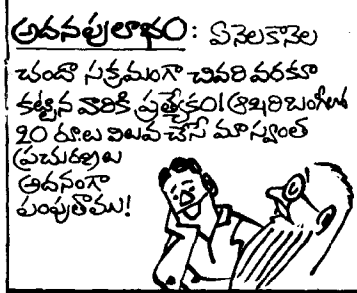 అదనపులాభం: ఏనెలకానెల
చందా సక్రమంగా చివరి వరకూ
కట్టిన వారికి ప్రత్యేకం! ఆఖరి బంగీలో
20 రూలు విలువ చేసే మా స్వంత
ప్రచురణలు
అదనంగా
పంపుతాము!